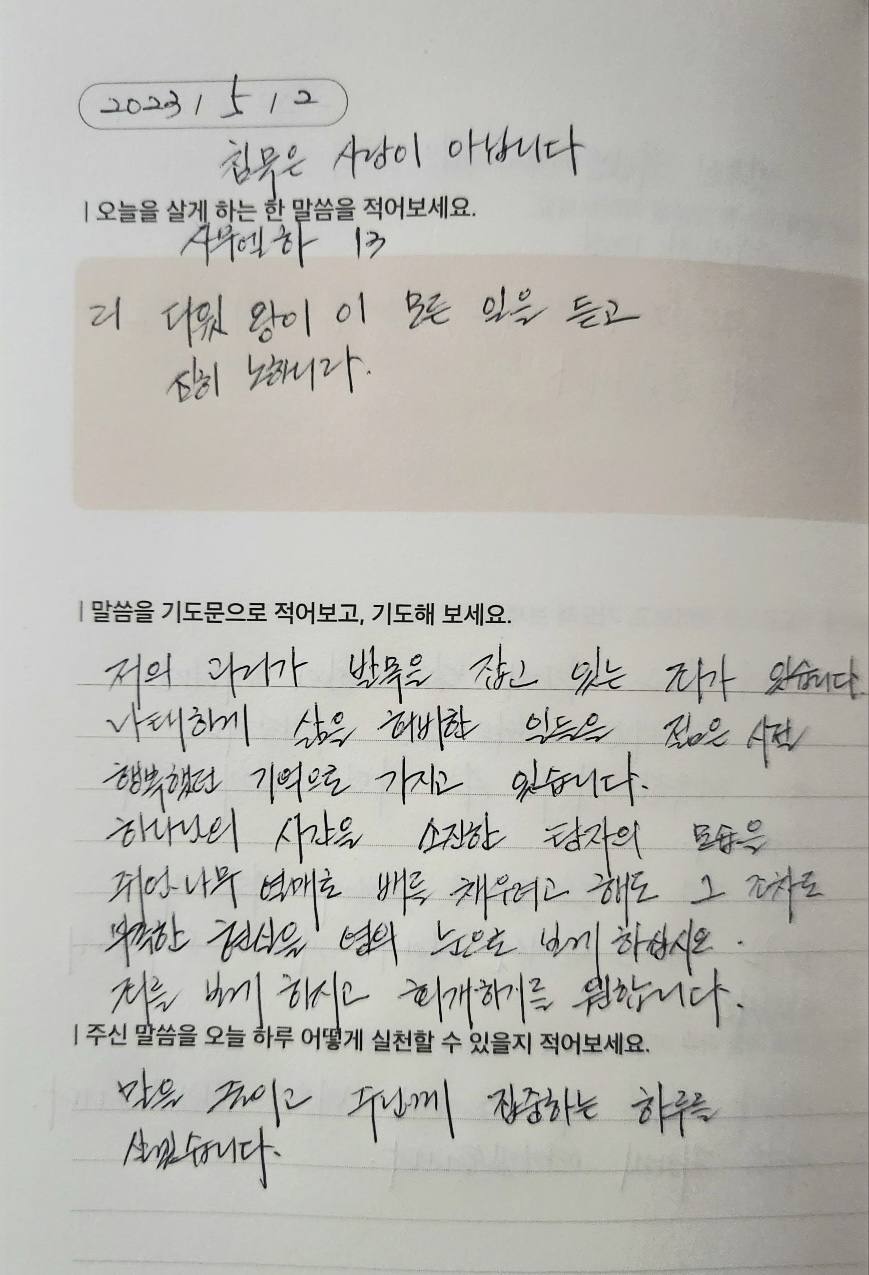 2023 / 5 / 2
침묵은 사랑이 아닙니다
오늘을 살게 하는 한 말씀을 적어보세요.
사무엘하 13
21 다윗 왕이 이 모든 일을 듣고
심히 노하니라.
말씀을 기도문으로 적어보고, 기도해 보세요.
저의 과거가 발목을 잡고 있는 죄가 있습니다.
나태하게 삶을 허비한 일들을 젊은 시절
행복했던 기억으로 가지고 있습니다.
하나님의 시간을 소진한 탕자의 모습을
쥐엄나무 열매로 배를 채우려고 해도 그 조차도
부족한 현실을 영의 눈으로 보게 하십시오.
죄를 보게 하시고 회개하기를 원합니다.
주신 말씀을 오늘 하루 어떻게 실천할 수 있을지 적어보세요.
말을 줄이고 주님께 집중하는 하루를
살겠습니다.